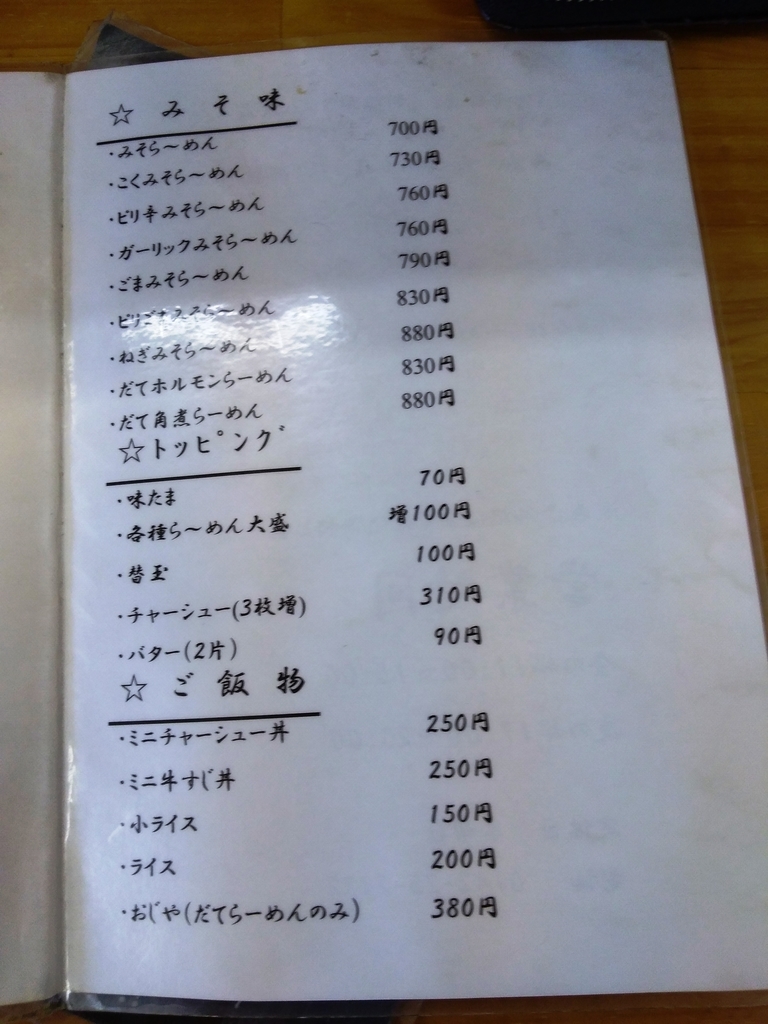 ☆ みそ味
・みそら～めん 700円
・こくみそら～めん 730円
・ピリ辛みそら～めん 760円
・ガーリックみそら～めん 760円
・ごまみそら～めん 790円
・ピリごまみそら～めん 830円
・ねぎみそら～めん 880円
・だてホルモンらーめん 830円
・だて角煮らーめん 880円
☆トッピング
・味たま 70円
・各種ら～めん大盛 増100円
・替玉 100円
・チャーシュー(3枚増) 310円
・バター(2片) 90円
☆ ご飯物
・ミニチャーシュー丼 250円
・ミニ牛すじ丼 250円
・小ライス 150円
・ライス 200円
・おじや(だてらーめんのみ) 380円